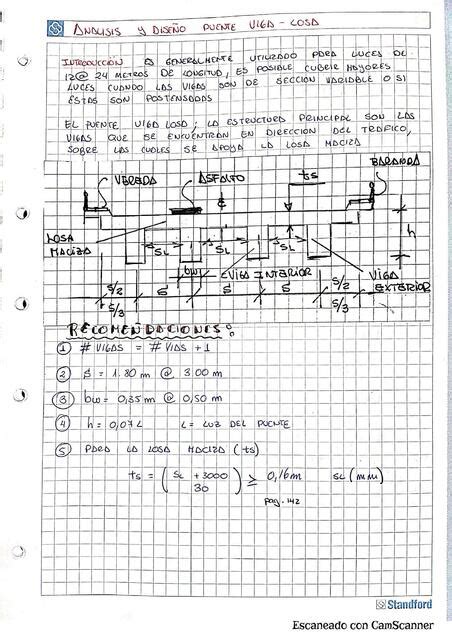 ANALISIS Y DISEÑO PUENTE VIGA - LOSA
INTRODUCCIÓN ES GENERALMENTE UTILIZADO PARA LUCES DE
12@ 24 METROS DE LONGITUD, ES POSIBLE CUBRIR MAYORES
LUCES CUANDO LAS VIGAS SON DE SECCION VARIABLE O SI
ESTAS SON POSTENSADAS
EL PUENTE VIGA LOSA: LA ESTRUCTURA PRINCIPAL SON LAS
VIGAS QUE SE ENCUENTRAN EN DIRECCION DEL TRAFICO,
SOBRE LAS CUALES SE APOYA LA LOSA MACIZA
VEREDA
ASFALTO
ts
BARANDA
LOSA
MACIZA
SL
SL
SL
h
bw
VIGA INTERIOR
VIGA
EXTERIOR
S/2
S
S
S
S/2
S/3
S/3
RECOMENDACIONES:
1 # VIGAS = # VIAS + 1
2 S = 1.80 m @ 3.00 m
3 bw = 0,35 m @ 0,50 m
4 h = 0,07 L L = LUZ DEL PUENTE
5 PARA LA LOSA MACIZA (ts)
ts = (SL + 3000 / 30) ≥ 0,16m SL (mm)
pag. 142
Standford
Escaneado con CamScanner